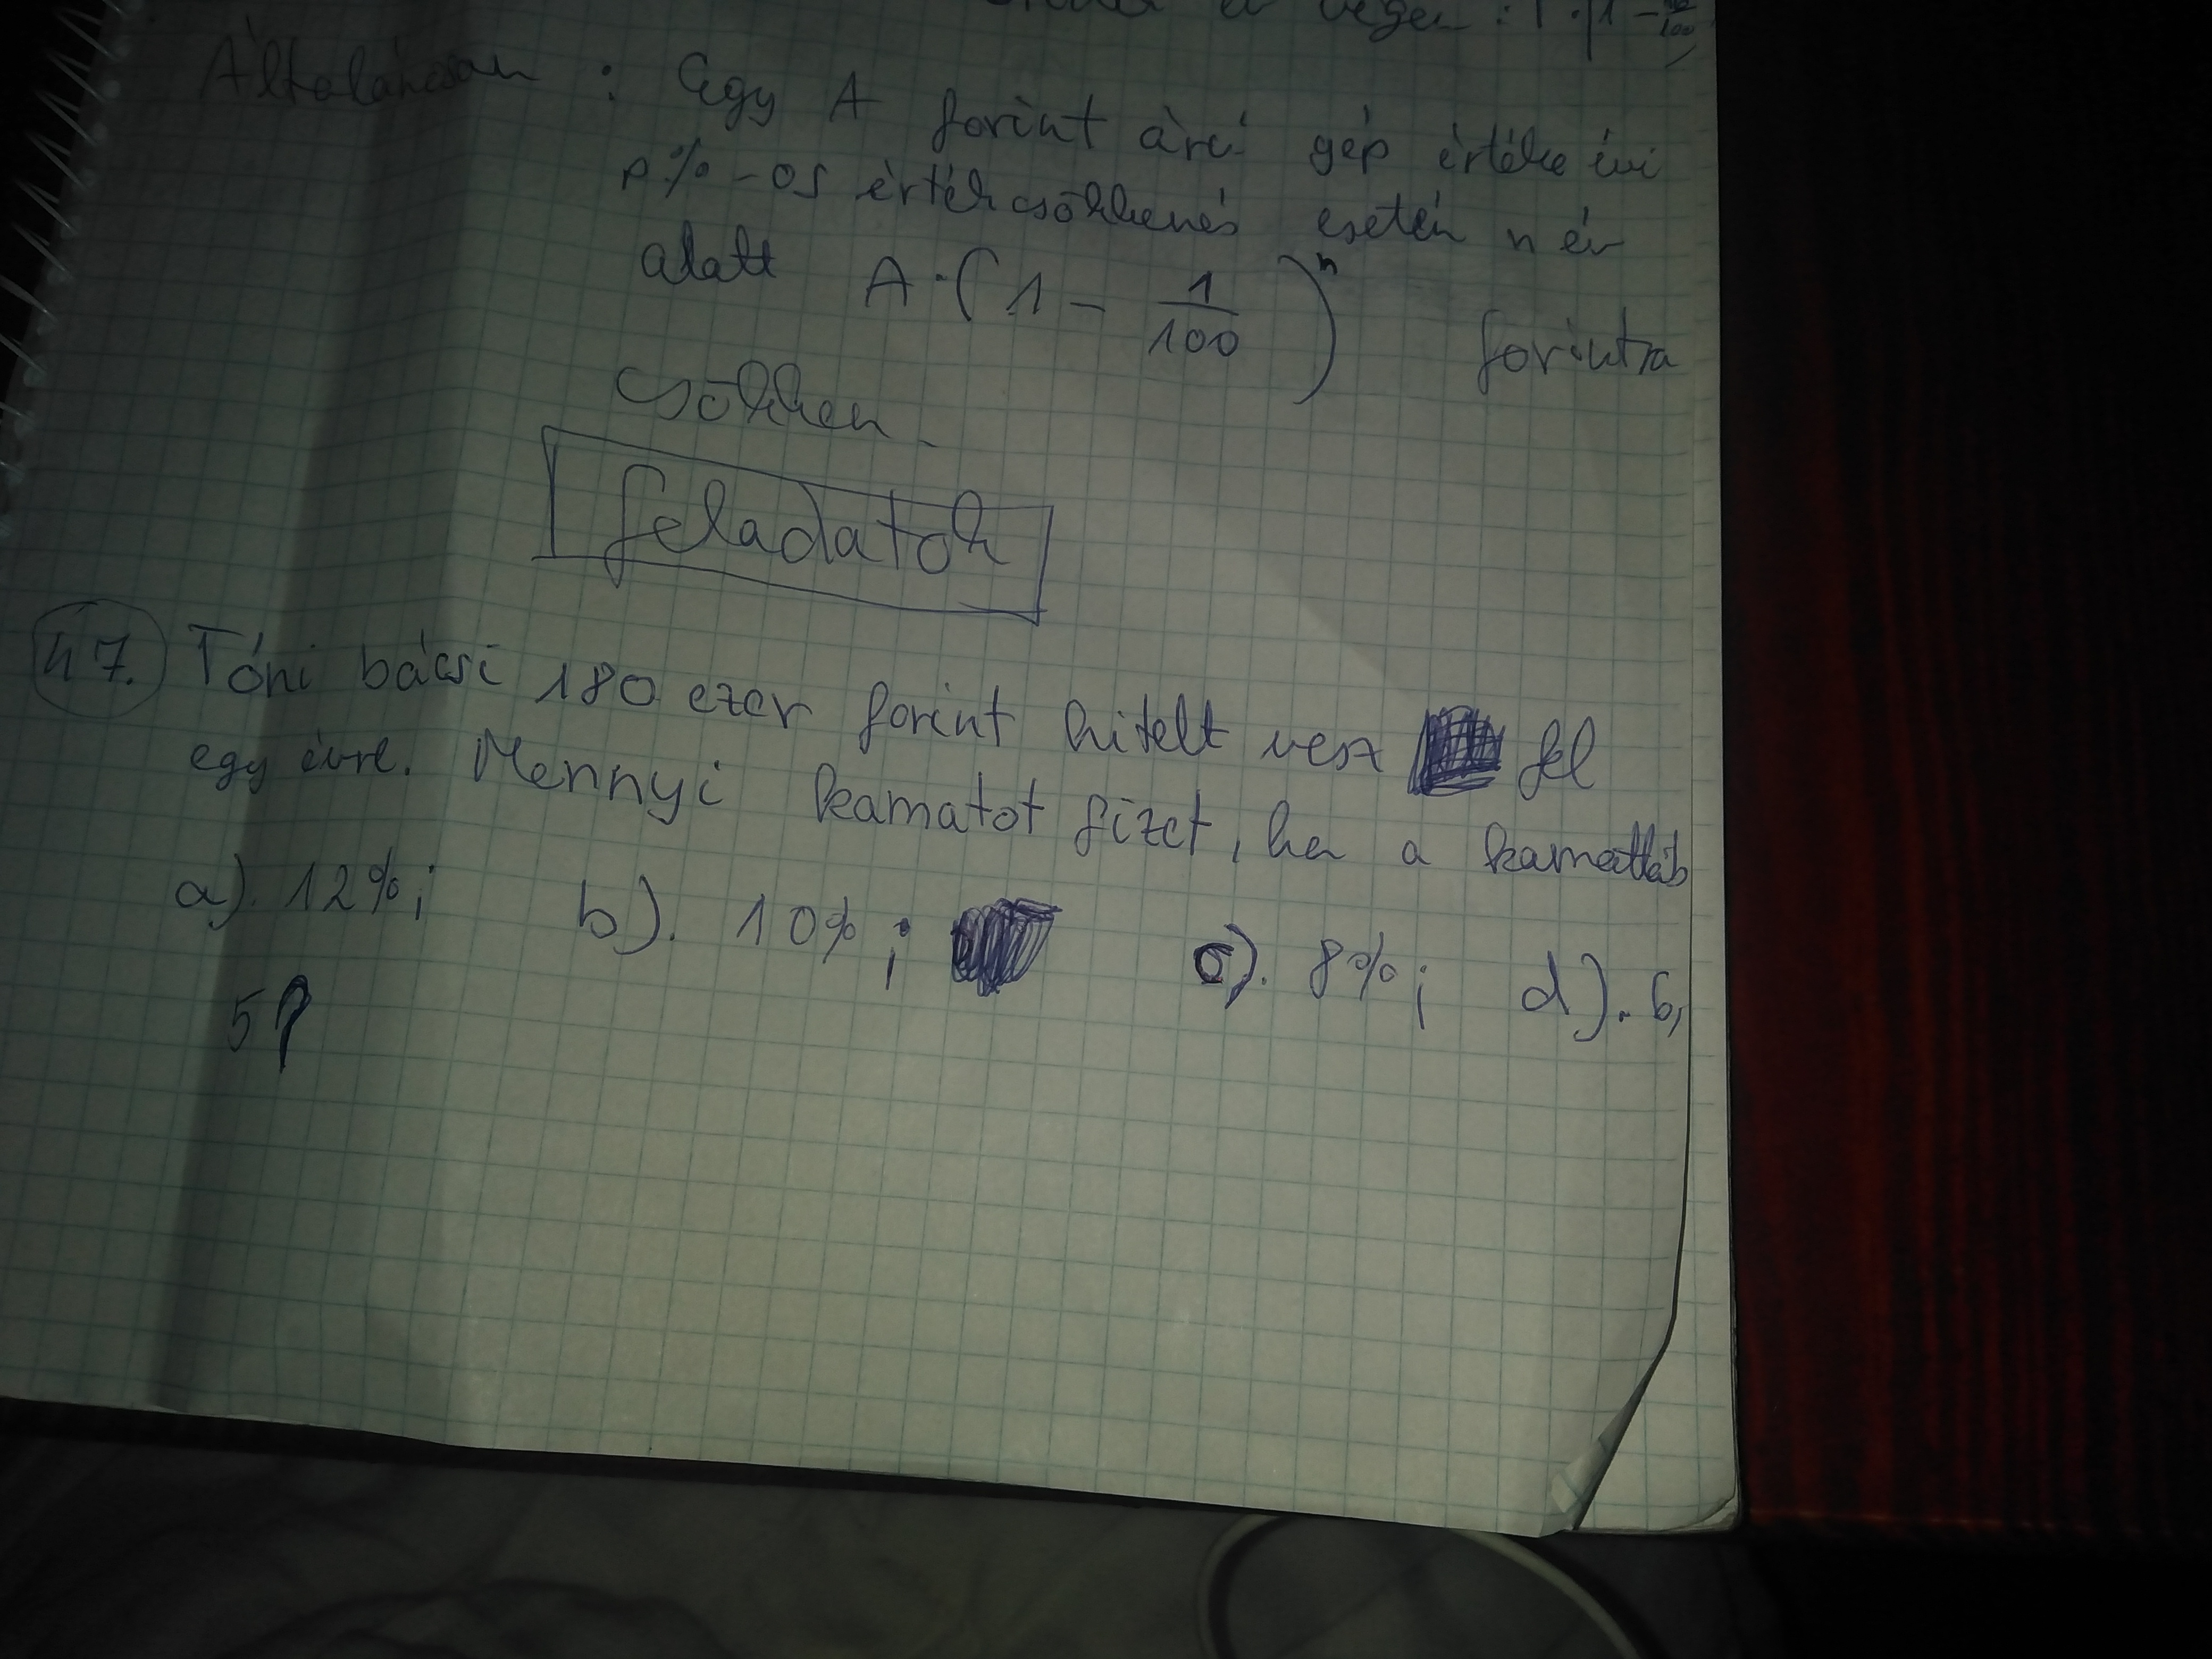 végén : 1 - 100
Általánosan : Egy A forint árú gép értéke évi
p%-os értékcsökkenés esetén n év
alatt A·(1 - 1/100)ⁿ forintra
csökken.
feladatok
47. Tóni bácsi 180 ezer forint hitelt vesz fel
egy évre. Mennyi kamatot fizet, ha a kamatláb
a). 12%; b). 10%; c). 8%; d). 6,
5?